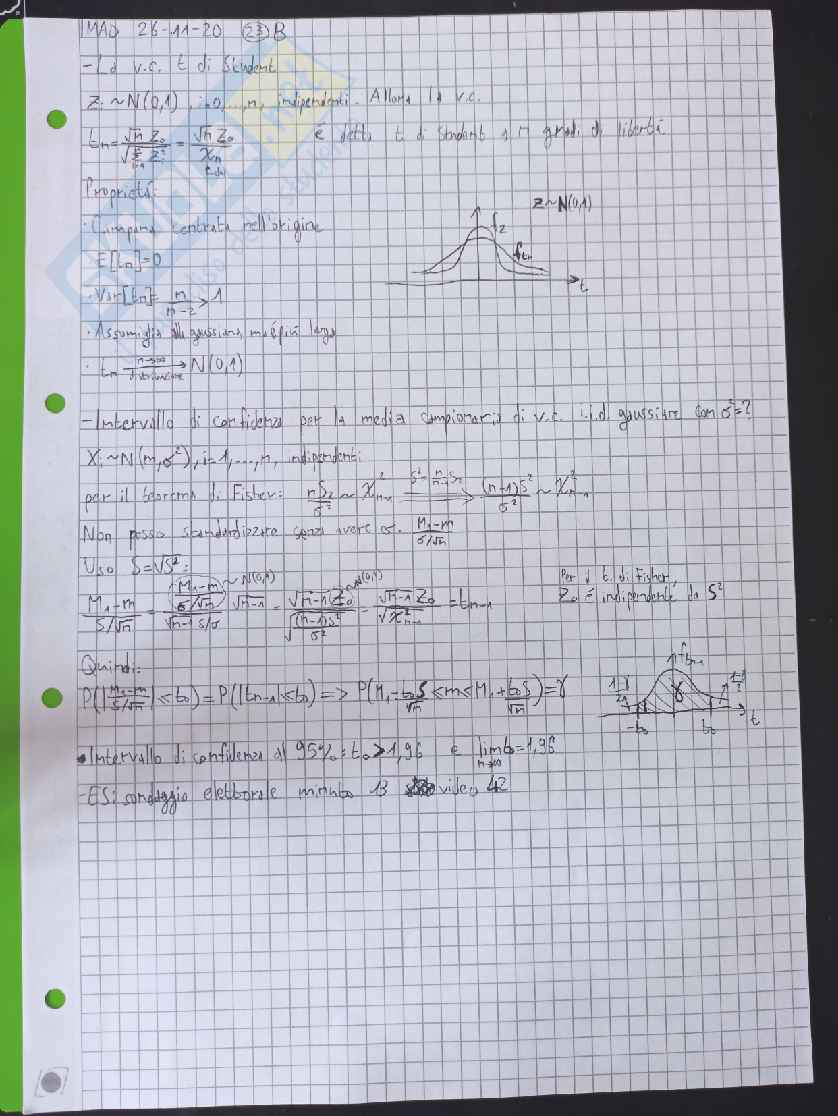 MAD 26-11-20 23 B
-La v.c. t di Student
Zi ~ N(0,1), i=0,...,n, indipendenti. Allora la v.c.
tn = √n Z0 / √(Σ Zi²) = √n Z0 / χn è detta t di Student a n gradi di libertà
Proprietà:
Z~N(0,1)
· Campana centrata nell'origine
fZ
ftn
t
· E[tn]=0
· Var[tn]= n/(n-2) > 1
· Assomiglia alla gaussiana, ma è più larga
· tn n→∞ distribuzione → N(0,1)
-Intervallo di confidenza per la media campionaria di v.c. i.i.d. gaussiane con σ²=?
Xi ~ N(m,σ²), i=1,...,n, indipendenti
per il teorema di Fisher: nS2/σ² ~ χ²n-1 S²= n/(n-1) S2 ⟹ (n-1)S²/σ² ~ χ²n-1
Non posso standardizzare senza avere σ. (M1-m)/(σ/√n)
Uso S=√S²:
(M1-m)/(S/√n) = ((M1-m)/(σ/√n))/(√n-1 S/σ) √n-1 = √n-1 Z0/√((n-1)S²/σ²) = √n-1 Z0/√χ²n-1 = tn-1
~N(0,1)
~N(0,1)
Per il t. di Fisher,
Z0 è indipendente da S²
Quindi:
P(|(M1-m)/(S/√n)|<t0)=P(|tn-1|<t0) => P(M1-t0S/√n<m<M1+t0S/√n)=γ
ftn-1
γ
-t0
t0
t
•Intervallo di confidenza al 95%: t0>1,96 e lim n→∞ t0=1,96
-ES: sondaggio elettorale minuto 13 video 42